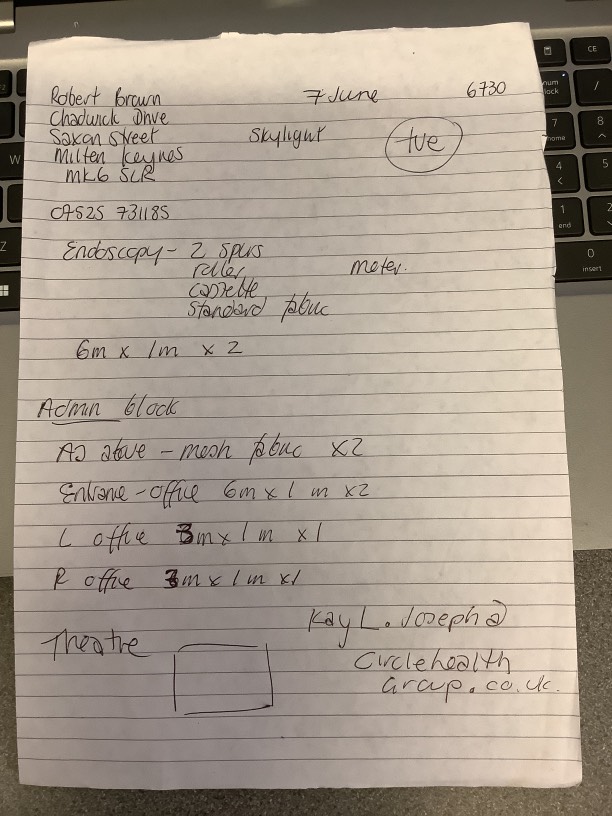 Robert Brown 7 June 6730
Chadwick Drive
Saxon Street Skylight tve
Milten Keynes
MK6 5LR
07525 731185
Endoscopy - 2 spurs
roller moter.
cassette
standard fabric
6m x 1m x 2
Admin block
As above - mesh fabric x2
Entrane - office 6m x 1m x2
L office 3m x 1m x1
R office 3m x 1m x1
Kay L. Joseph@
Theatre
Circlehealth
group.co.uk.